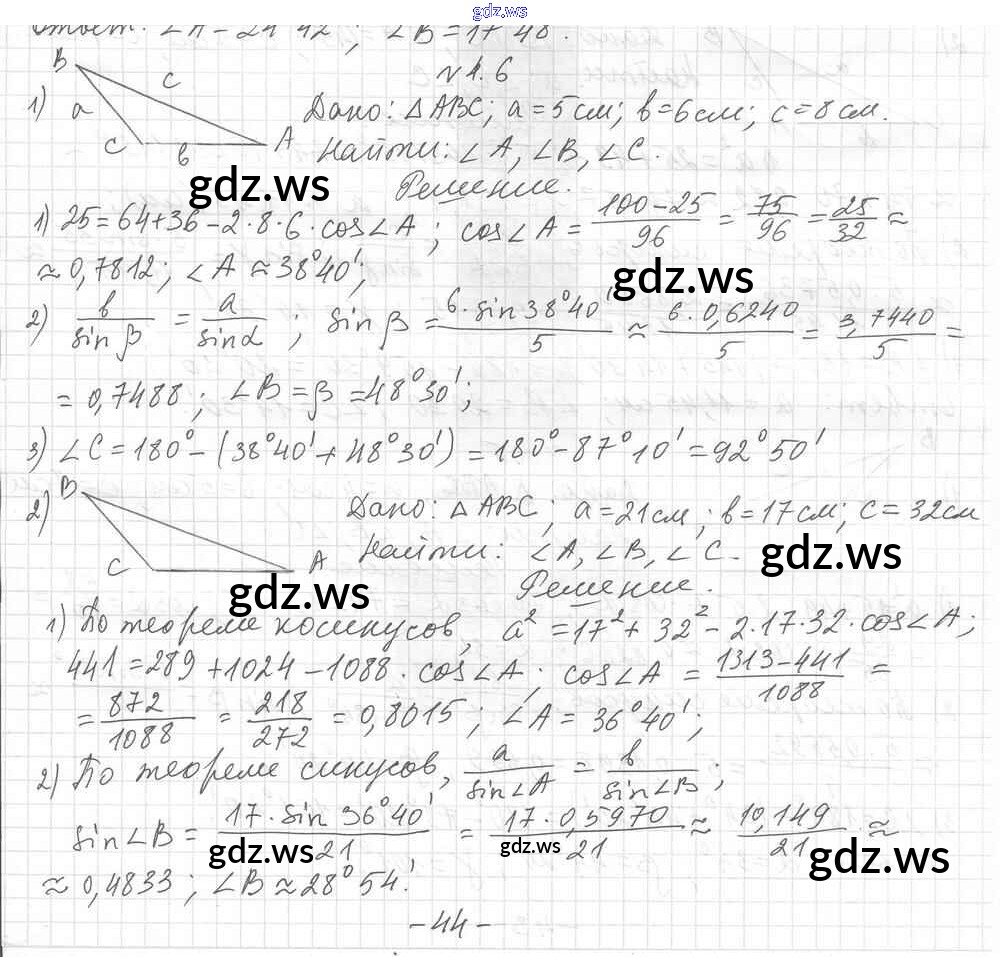 gdz.ws
Ответ: ∠A = 24°42'; ∠B = 17°48'.
N 4.6
1) B c a C b A
Дано: △ABC; a=5см; b=6см; c=8см.
Найти: ∠A, ∠B, ∠C.
gdz.ws
Решение.
1) 25=64+36-2·8·6·cos∠A; cos∠A = (100-25)/96 = 75/96 = 25/32 ≈
≈ 0,7812; ∠A ≈ 38°40';
gdz.ws
2) b/sin β = a/sin α; sin β = 6·sin 38°40'/5 ≈ 6·0,6240/5 = 3,7440/5 =
= 0,7488; ∠B = β = 48°30';
3) ∠C = 180° - (38°40' + 48°30') = 180° - 87°10' = 92°50'
2) B C A
Дано: △ABC; a=21см; b=17см; c=32см
Найти: ∠A, ∠B, ∠C.
gdz.ws
gdz.ws
Решение.
1) По теореме косинусов, a² = 17² + 32² - 2·17·32·cos∠A;
441 = 289 + 1024 - 1088·cos∠A; cos∠A = (1313-441)/1088 =
= 872/1088 = 218/272 = 0,8015; ∠A = 36°40';
2) По теореме синусов, a/sin∠A = b/sin∠B;
sin∠B = 17·sin 36°40'/21 = 17·0,5970/21 ≈ 10,149/21 ≈
gdz.ws gdz.ws gdz.ws
≈ 0,4833; ∠B ≈ 28°54'.
-44-